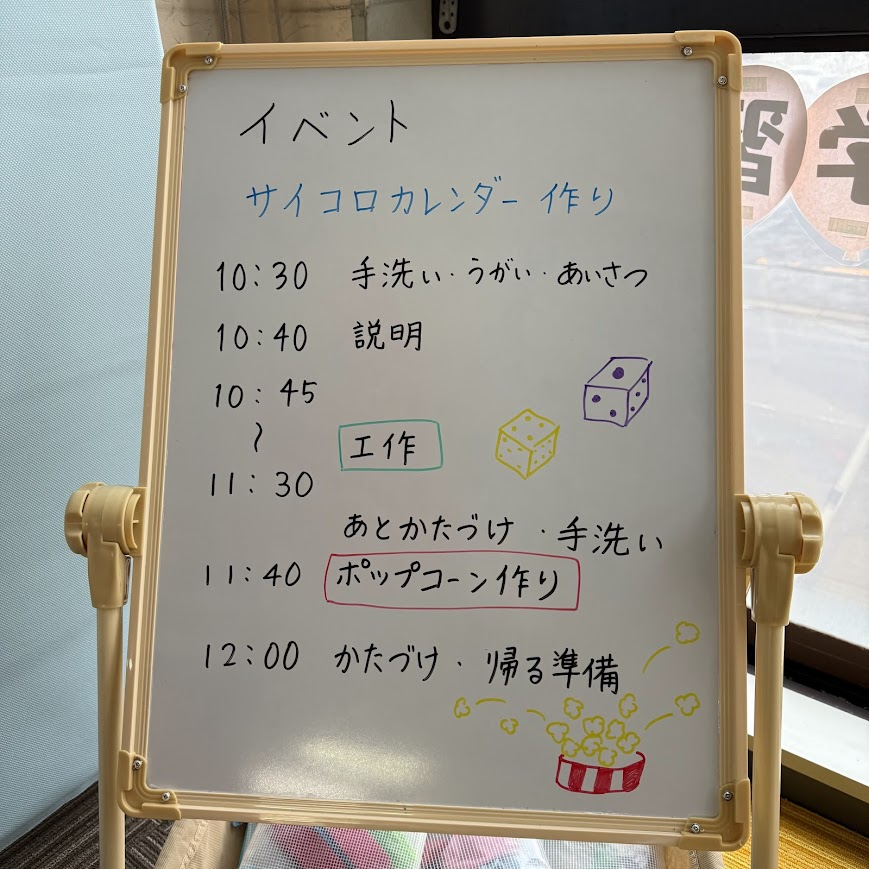 イベント
サイコロカレンダー作り
10:30 手洗い・うがい・あいさつ
10:40 説明
10:45
〜
工作
11:30
あとかたづけ ・手洗い
11:40 ポップコーン作り
12:00 かたづけ・帰る準備
学習